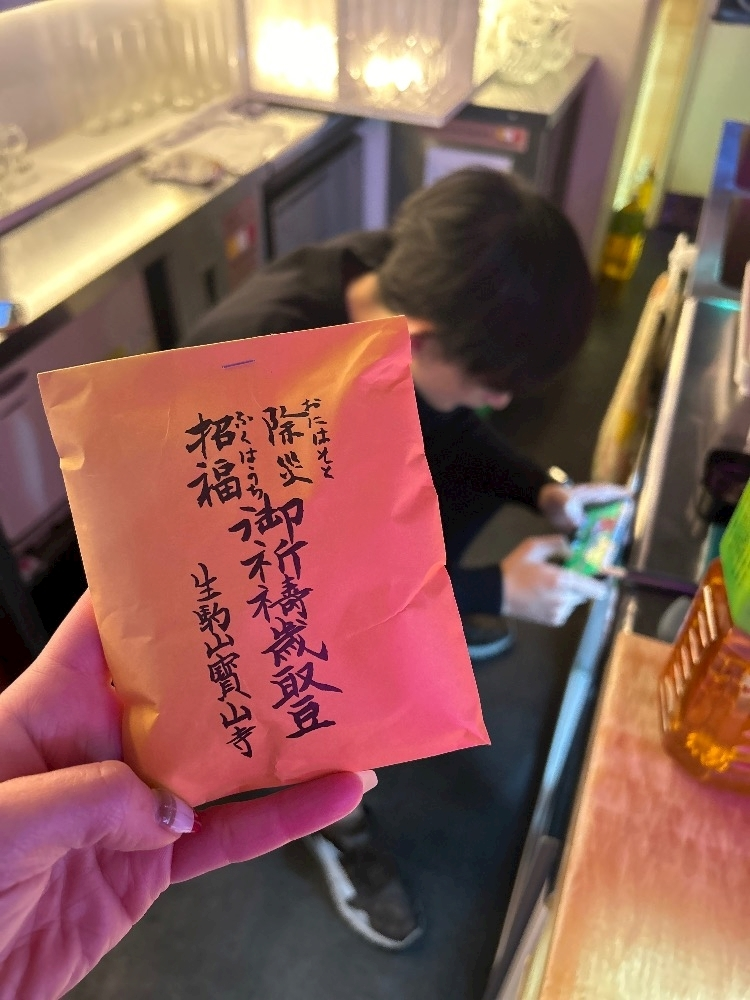 おにはそと
除災
ふくはうち
招福
御祈禱歳取豆
生駒山寳山寺